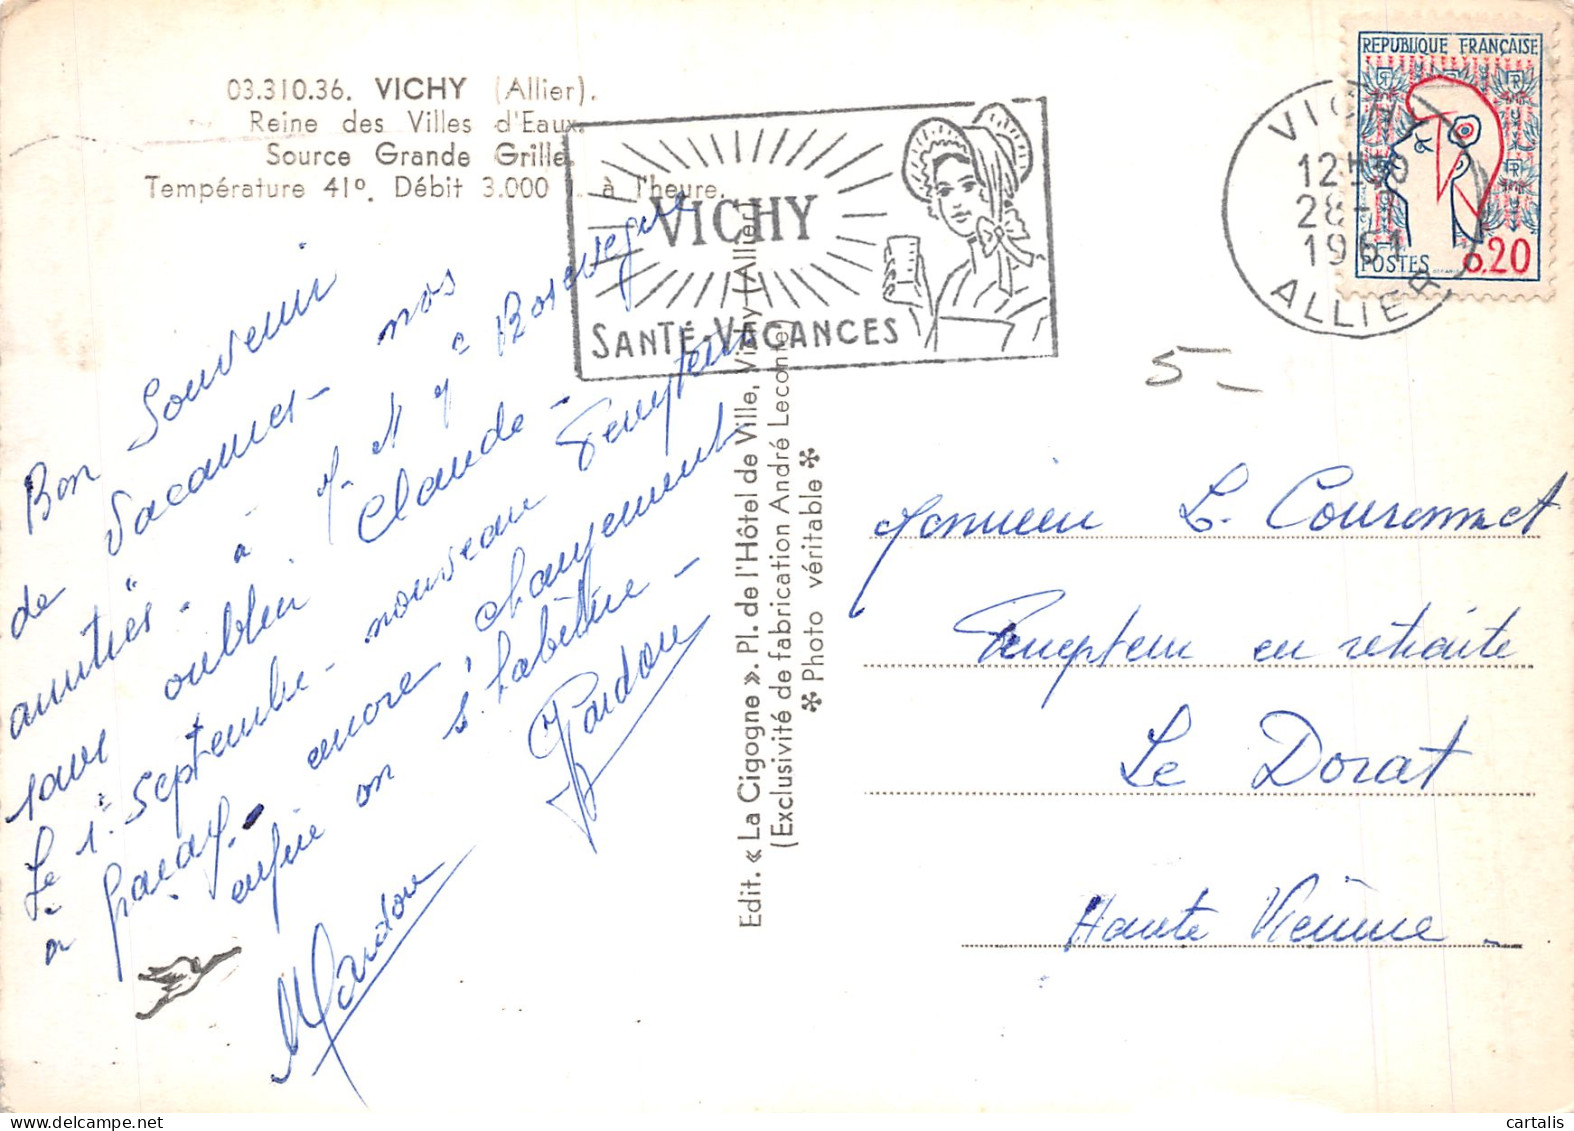 03.310.36. VICHY (Allier).
Reine des Villes d'Eaux.
Source Grande Grille.
Température 41°. Débit 3.000 l. à l'heure.
VICHY
SANTÉ-VACANCES
VICHY
12H30
28-
1961
ALLIER
REPUBLIQUE FRANÇAISE
POSTES
0.20
5-
Bon Souvenir
de Vacances - nos
amitiés - à
sans oublier Claude -
Le 1er Septembre - nouveau Percepteur
à encore, changement
enfin on s'habitue -
Edit. « La Cigogne ». Pl. de l'Hôtel de Ville, Vichy (Allier)
(Exclusivité de fabrication André Leconte)
✻ Photo véritable ✻
Monsieur L. Couronnet
Percepteur en retraite
Le Dorat
Haute Vienne -
cartalis www.delcampe.net